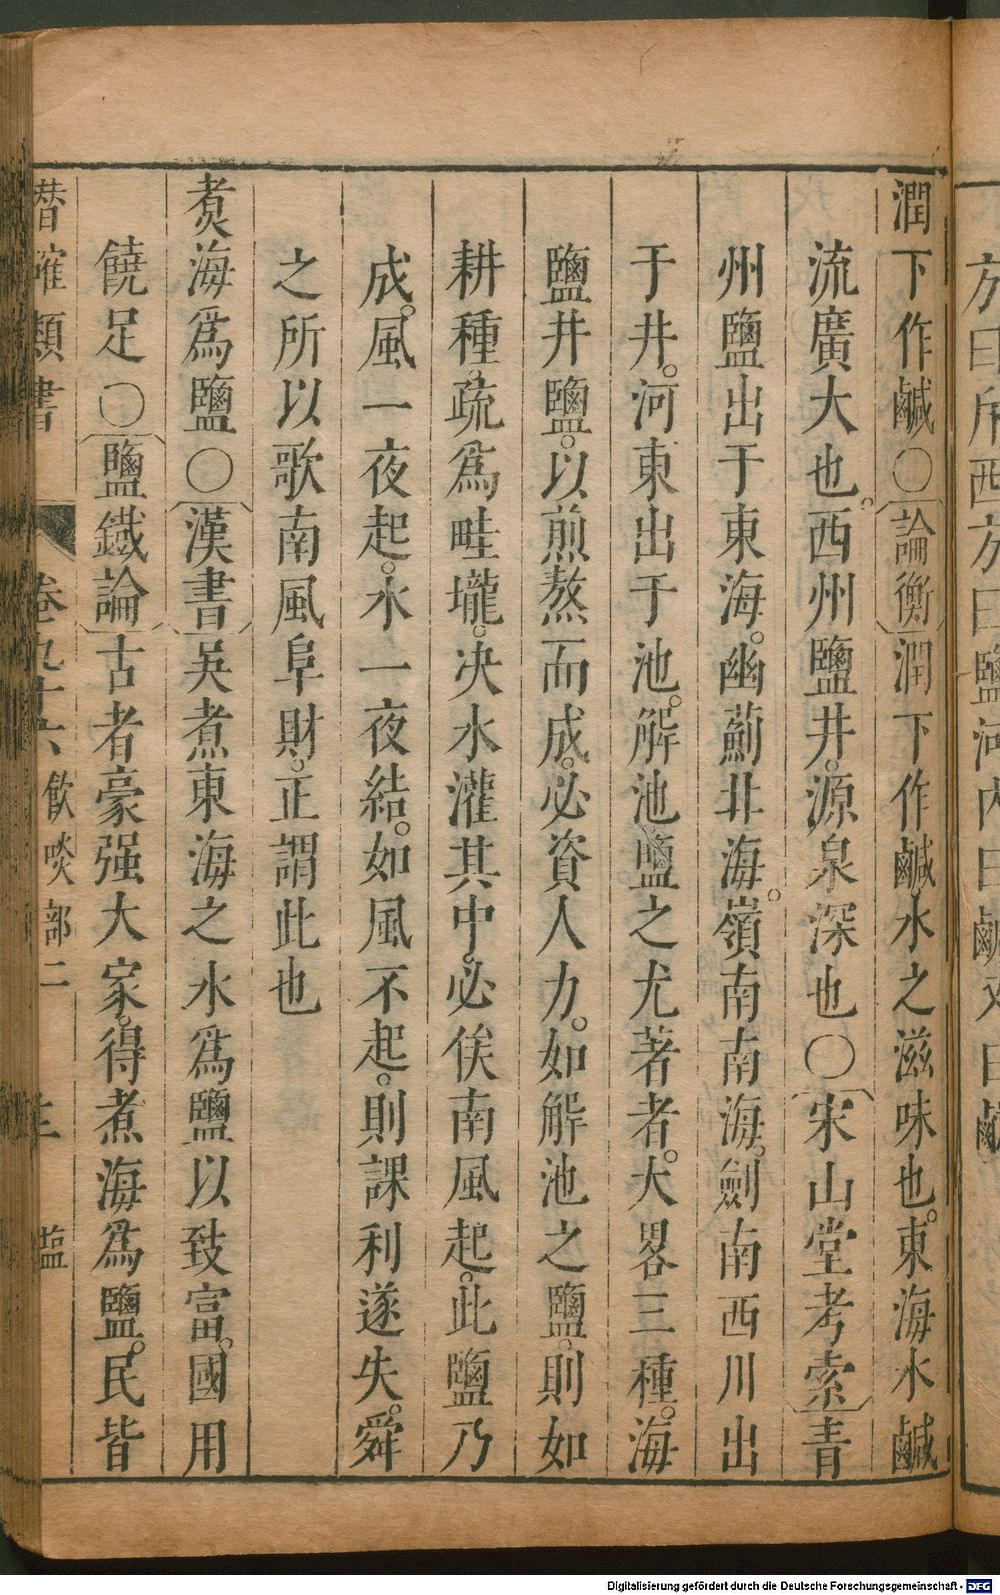 潤下作鹹○論衡潤下作鹹水之滋味也。東海水鹹
流廣大也。西州鹽井。源泉深也○宋山堂考索青
州鹽出于東海。幽薊北海。嶺南南海。劍南西川出
于井。河東出于池。解池鹽之尤著者。大畧三種。海
鹽井鹽。以煎熬而成。必資人力。如解池之鹽。則如
耕種。疏爲畦壠。决水灌其中。必俟南風起。此鹽乃
成。風一夜起。水一夜結。如風不起。則課利遂失。舜
之所以歌南風阜財。正謂此也
煑海爲鹽○漢書吳煮東海之水爲鹽以致富。國用
饒足○鹽鐵論古者豪强大家。得煮海爲鹽。民皆
潛確類書 卷九十六 飲啖部二 鹽
方曰斥西方曰鹽河內曰鹹
Digitalisierung gefördert durch die Deutsche Forschungsgemeinschaft - DFG